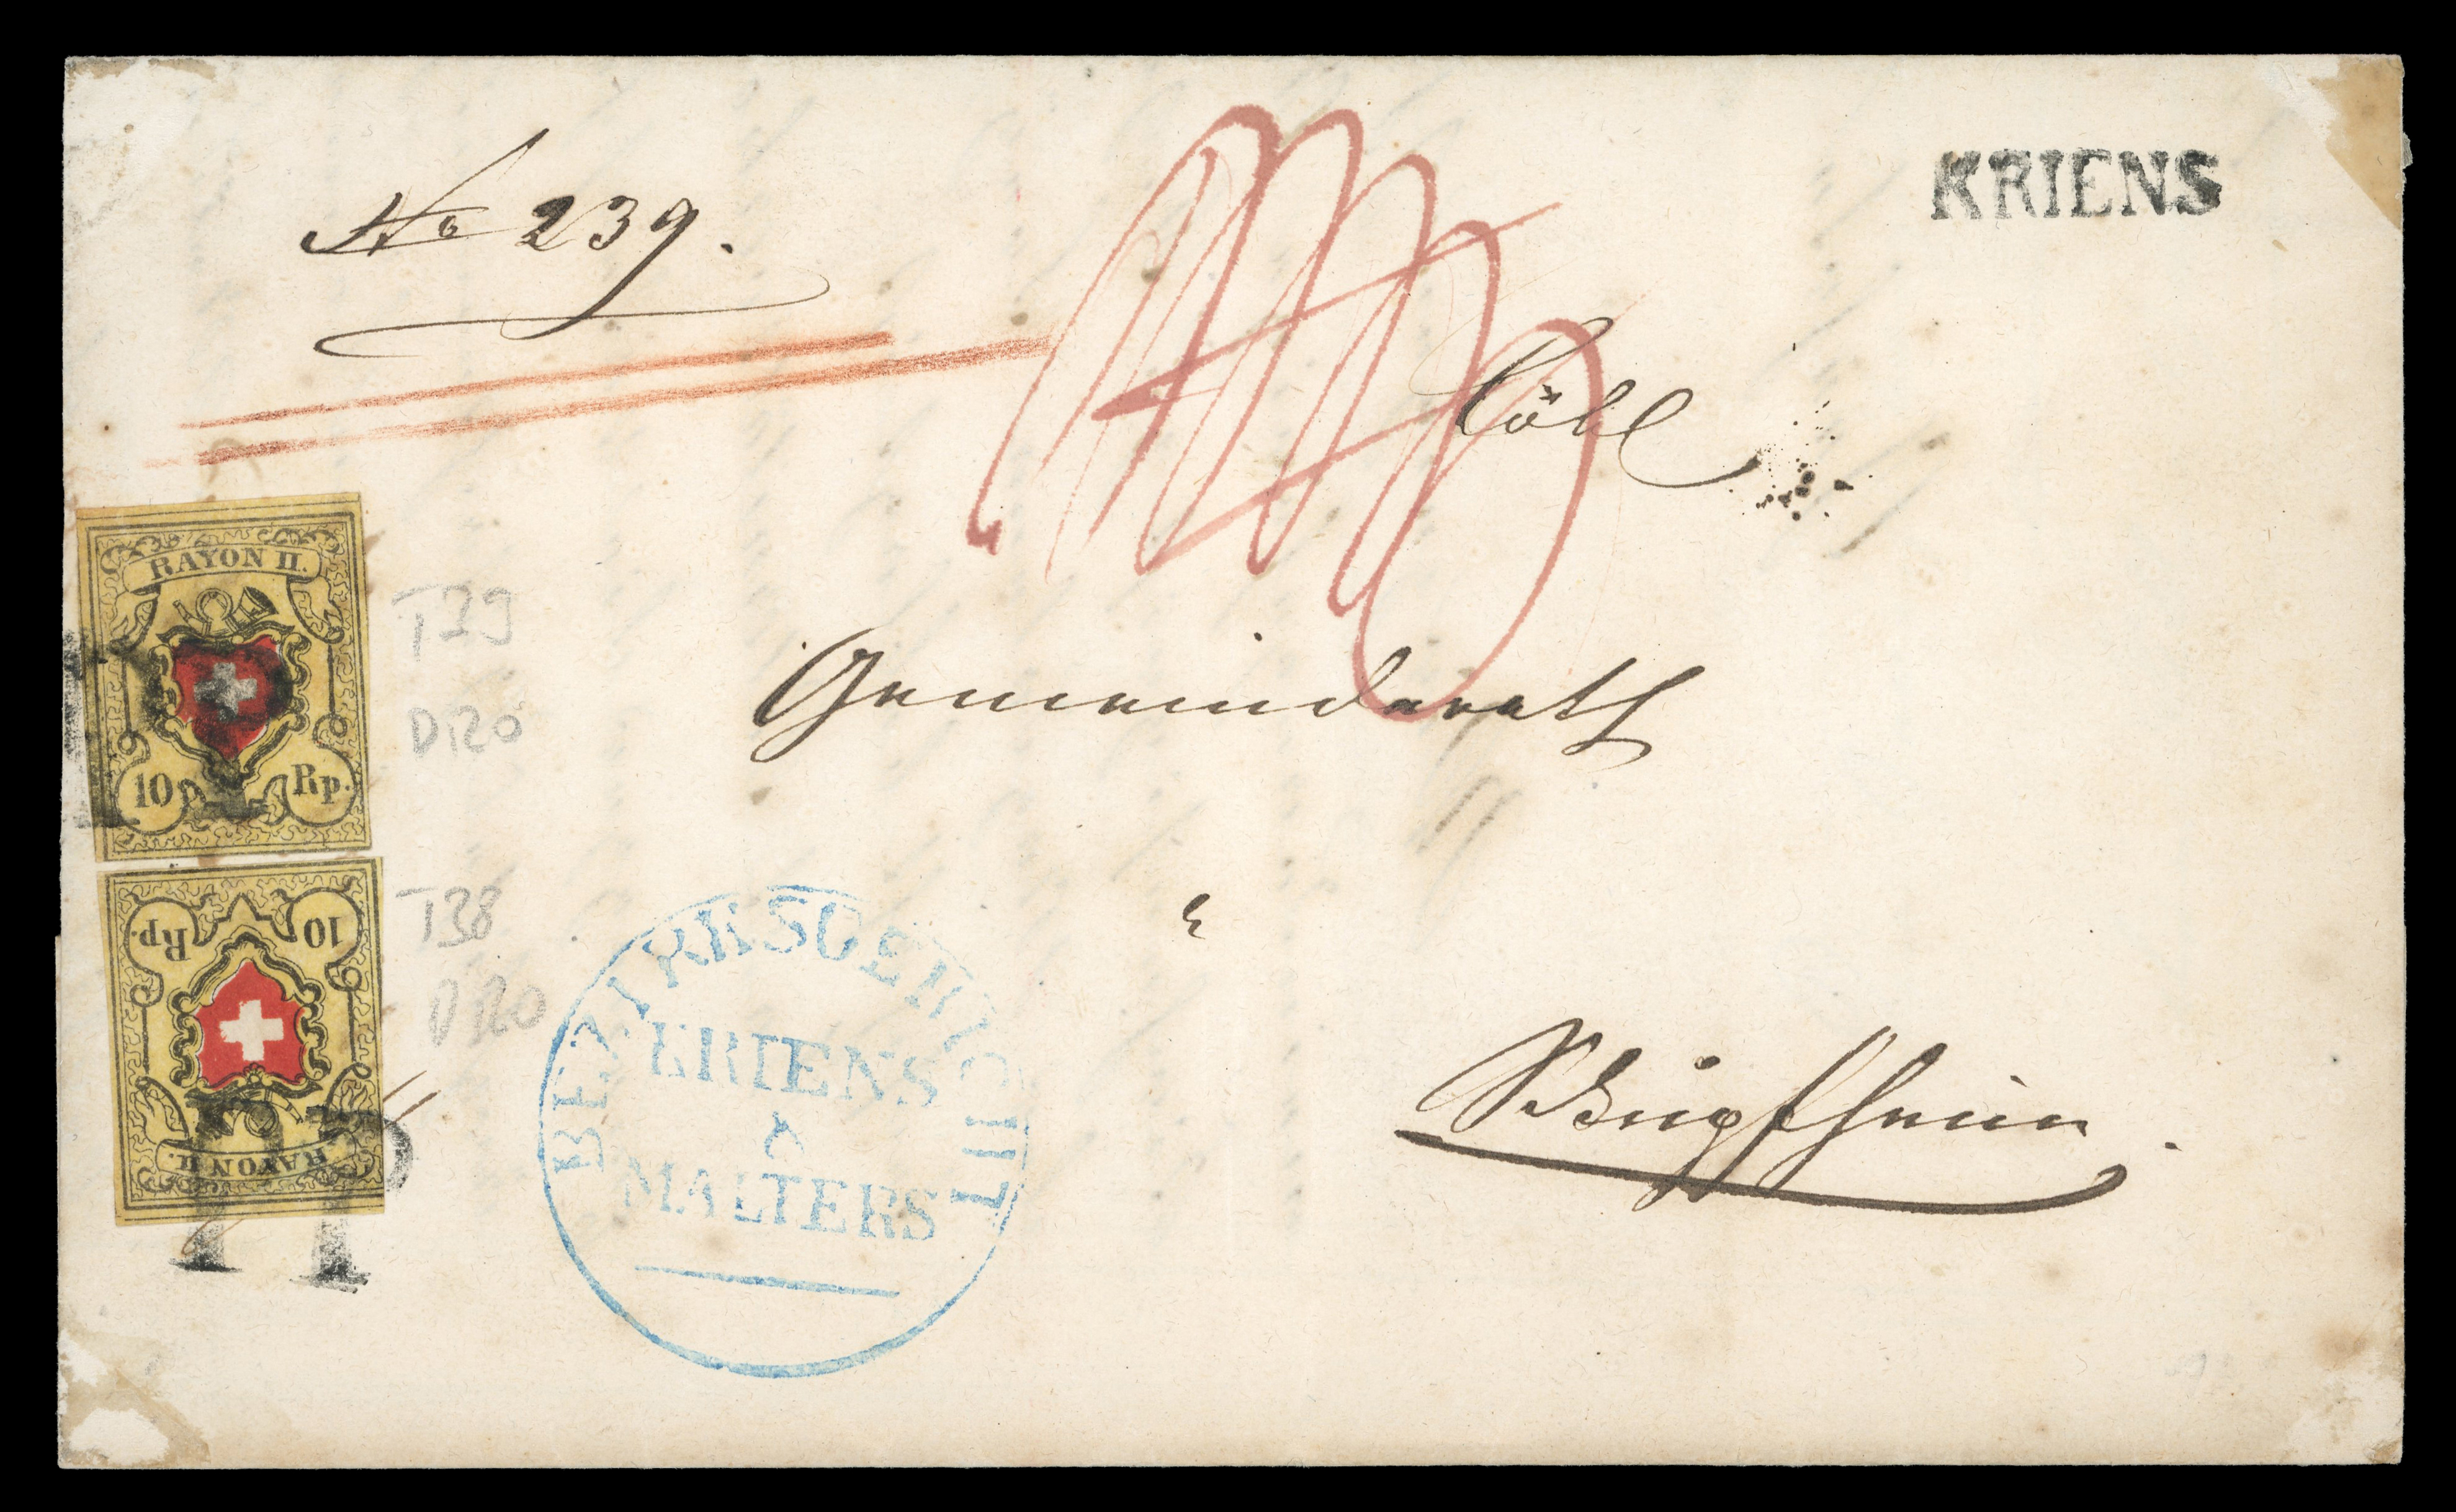 KRIENS
No 239.
Löbl
RAYON II.
10 Rp.
T39
Gemeinderath
10 Rp.
RAYON II.
T38
PP
BEZIRKSGERICHT
KRIENS
&
MALTERS
Schüpfheim.